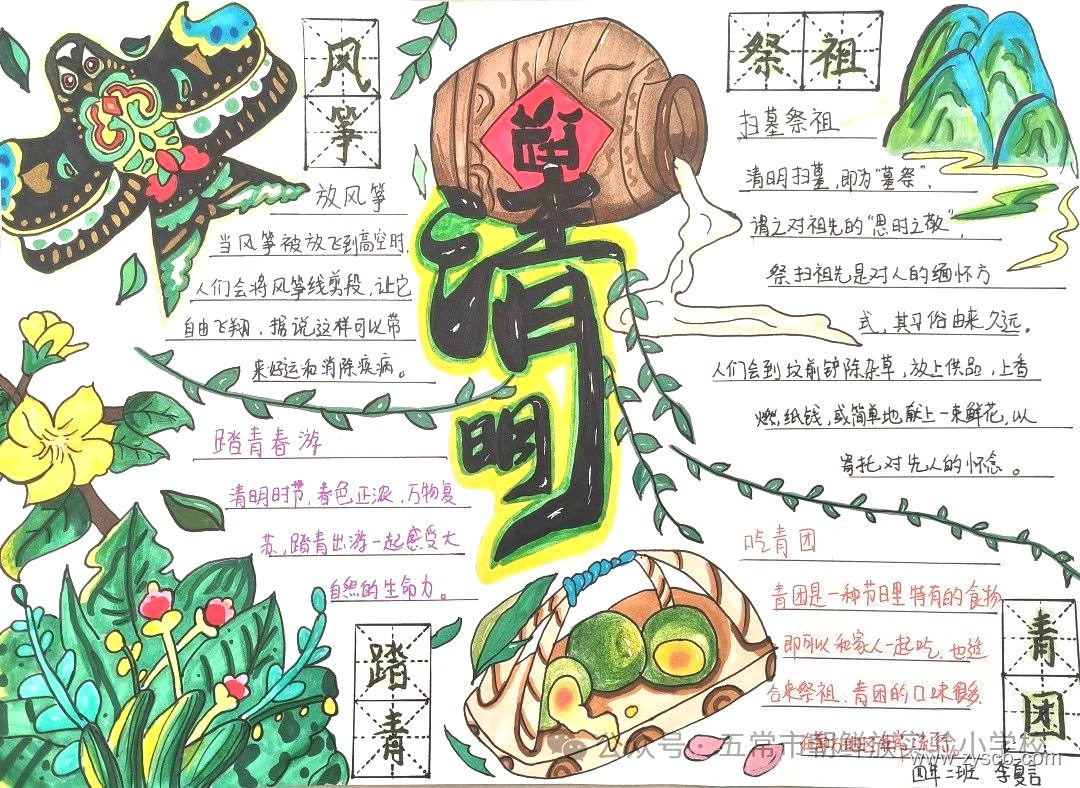 风
筝
放风筝
当风筝被放飞到高空时,
人们会将风筝线剪段,让它
自由飞翔.据说这样可以带
来好运和消除疾病。
踏青春游
清明时节,春色正浓,万物复
苏,踏青出游一起感受大
自然的生命力。
踏
青
酒
清
明
祭祖
扫墓祭祖
清明扫墓,即为“墓祭”,
谓之对祖先的“思时之敬”,
祭扫祖先是对人的缅怀方
式,其习俗由来久远。
人们会到坟前铲除杂草,放上供品,上香
燃纸钱,或简单地献上一束鲜花,以
寄托对先人的怀念。
吃青团
青团是一种节日里特有的食物
即可以和家人一起吃,也适
合来祭祖.青团的口味很多.
青
团
公众号·五常市朝鲜族实验小学校
www.zyscb.com
四年二班 李夏言